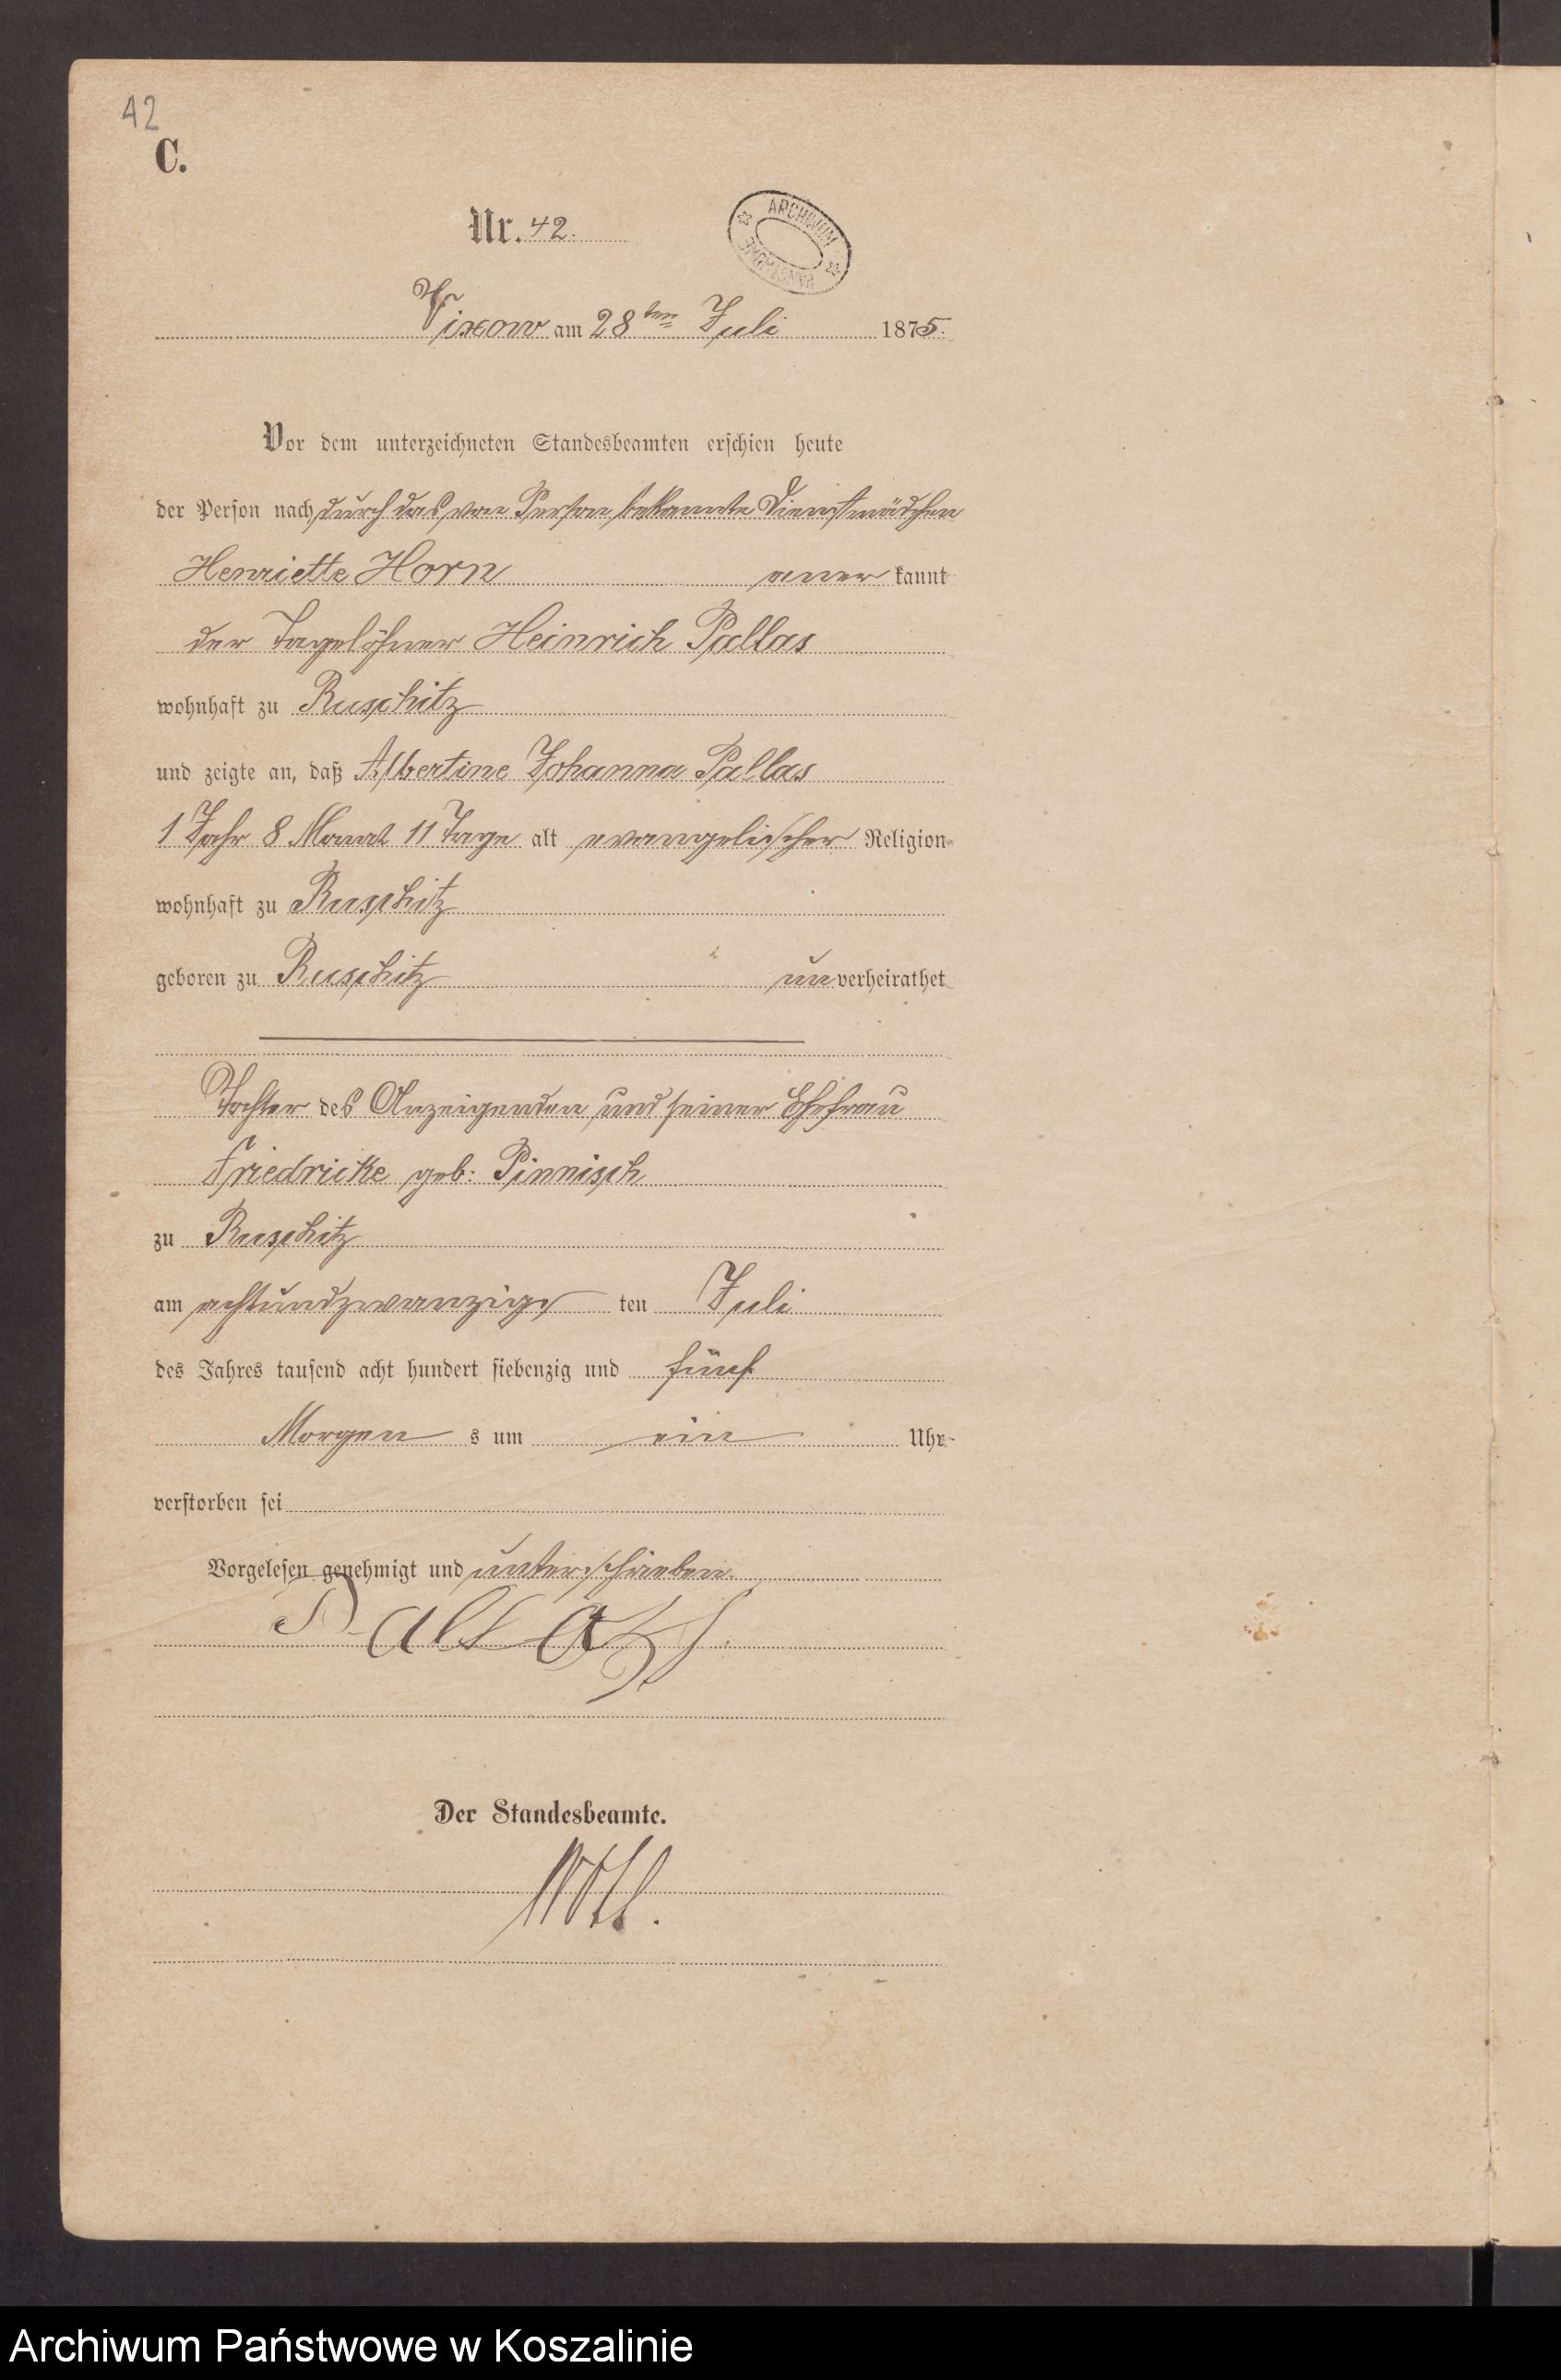 42
C.
Nr. 42.
ARCHIWUM PAŃSTWOWE
Vixow am 28ten Juli 1875.
Vor dem unterzeichneten Standesbeamten erschien heute
der Person nach durch das von Person bekannte Dienstmädchen
Henriette Horn aner kannt
der Tagelöhner Heinrich Pallas
wohnhaft zu Ruschitz
und zeigte an, daß Albertine Johanna Pallas
1 Jahr 8 Monat 11 Tage alt evangelischer Religion
wohnhaft zu Ruschitz
geboren zu Ruschitz unverheirathet
Tochter des Anzeigenden und seiner Ehefrau
Friedricke geb: Pinnisch
zu Ruschitz
am achtundzwanzigs ten Juli
des Jahres tausend acht hundert siebenzig und fünf
Morgen s um ein Uhr
verstorben sei
Vorgelesen genehmigt und unterschrieben.
Der Standesbeamte.
Archiwum Państwowe w Koszalinie